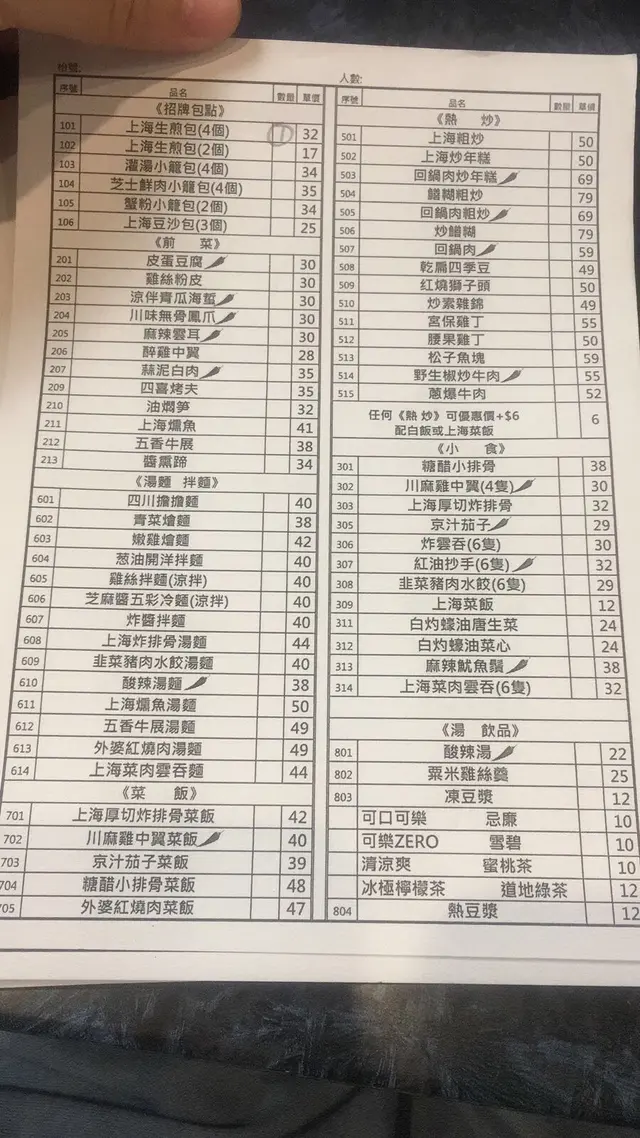 枱號:
序號 品名 數量 單價
《招牌包點》
101 上海生煎包(4個) 1 32
102 上海生煎包(2個) 17
103 灌湯小籠包(4個) 34
104 芝士鮮肉小籠包(4個) 35
105 蟹粉小籠包(2個) 34
106 上海豆沙包(3個) 25
《前 菜》
201 皮蛋豆腐 30
202 雞絲粉皮 30
203 涼伴青瓜海蜇 30
204 川味無骨鳳爪 30
205 麻辣雲耳 30
206 醉雞中翼 28
207 蒜泥白肉 35
209 四喜烤夫 35
210 油燜筍 32
211 上海燻魚 41
212 五香牛展 38
213 醬熏蹄 34
《湯麵 拌麵》
601 四川擔擔麵 40
602 青菜燴麵 38
603 嫩雞燴麵 42
604 葱油開洋拌麵 40
605 雞絲拌麵(涼拌) 40
606 芝麻醬五彩冷麵(涼拌) 40
607 炸醬拌麵 40
608 上海炸排骨湯麵 44
609 韭菜豬肉水餃湯麵 40
610 酸辣湯麵 38
611 上海燻魚湯麵 50
612 五香牛展湯麵 49
613 外婆紅燒肉湯麵 49
614 上海菜肉雲吞麵 44
《菜 飯》
701 上海厚切炸排骨菜飯 42
702 川麻雞中翼菜飯 40
703 京汁茄子菜飯 39
704 糖醋小排骨菜飯 48
705 外婆紅燒肉菜飯 47
人數:
序號 品名 數量 單價
《熱 炒》
501 上海粗炒 50
502 上海炒年糕 50
503 回鍋肉炒年糕 69
504 鱔糊粗炒 79
505 回鍋肉粗炒 69
506 炒鱔糊 79
507 回鍋肉 59
508 乾扁四季豆 49
509 紅燒獅子頭 50
510 炒素雜錦 49
511 宮保雞丁 55
512 腰果雞丁 50
513 松子魚塊 59
514 野生椒炒牛肉 55
515 蔥爆牛肉 52
任何《熱 炒》可優惠價+$6
配白飯或上海菜飯 6
《小 食》
301 糖醋小排骨 38
302 川麻雞中翼(4隻) 30
303 上海厚切炸排骨 32
305 京汁茄子 29
306 炸雲吞(6隻) 30
307 紅油抄手(6隻) 32
308 韭菜豬肉水餃(6隻) 29
309 上海菜飯 12
311 白灼蠔油唐生菜 24
312 白灼蠔油菜心 24
313 麻辣魷魚鬚 38
314 上海菜肉雲吞(6隻) 32
《湯 飲品》
801 酸辣湯 22
802 粟米雞絲羹 25
803 凍豆漿 12
可口可樂 忌廉 10
可樂ZERO 雪碧 10
清涼爽 蜜桃茶 10
冰極檸檬茶 道地綠茶 12
804 熱豆漿 12